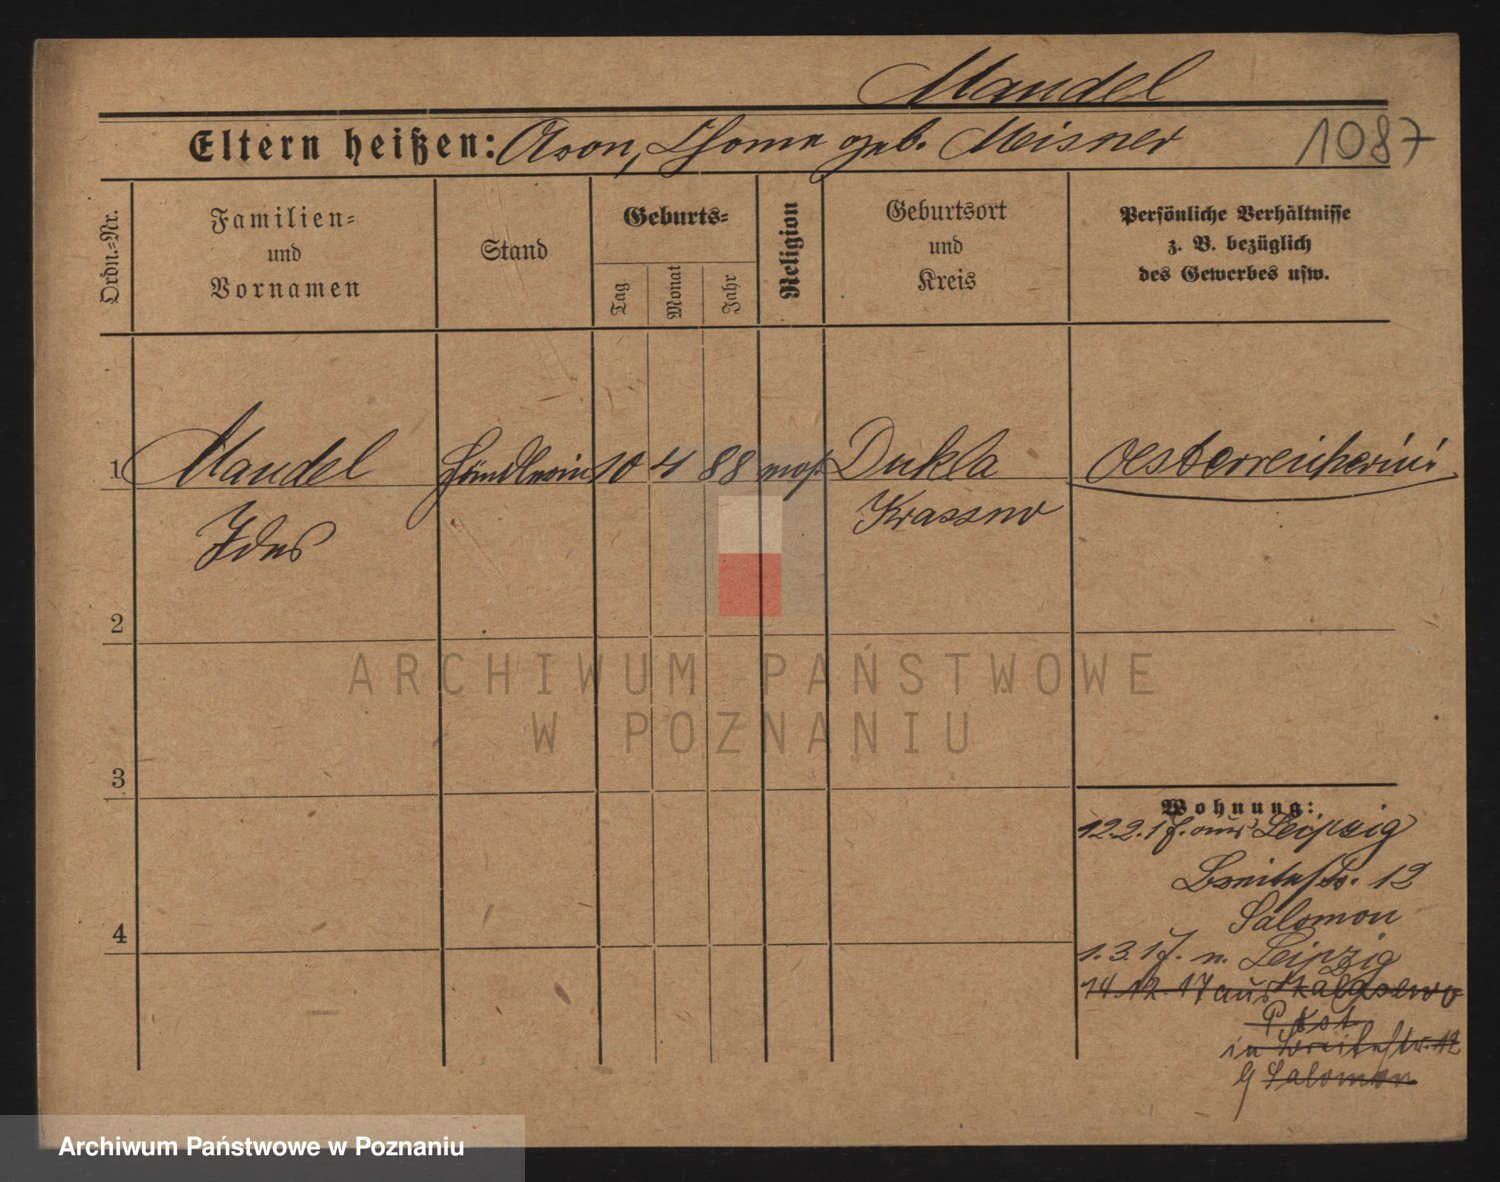 Mandel
Eltern heißen: Aron, Choma geb. Meisner
1087
Ordn.=Nr.
Familien=
und
Vornamen
Stand
Geburts=
Tag
Monat
Jahr
Religion
Geburtsort
und
Kreis
Persönliche Verhältnisse
z. B. bezüglich
des Gewerbes usw.
1
Mandel
Händlerin
10
4
88
mos.
Dukla
Oesterreicherin
Krassno
2
3
4
Wohnung:
12.2.17. aus Leipzig
Breitestr. 12
Salomon
1.3.17. n. Leipzig
14.12.17 aus
in Breitestr. 12
Salomon
ARCHIWUM PAŃSTWOWE
W POZNANIU
Archiwum Państwowe w Poznaniu